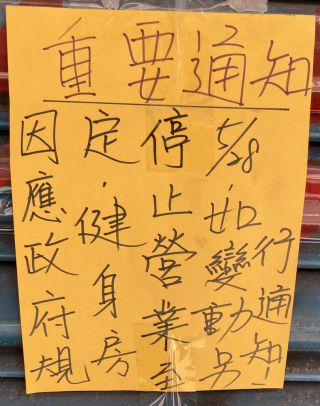 重要通知
因應政府規
定，健身房
停止營業至
5/28，如變動另
行通知！